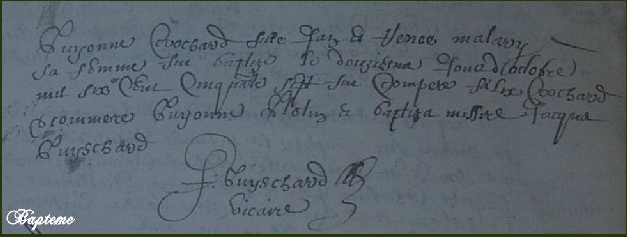 Guyonne Crochard fille Jan & Renee malary
sa femme fut baptizee le douziesme Jour doctobre
mil six Cent Cinquante sept fut Compere Crochard
& commere Guyonne & baptiza missire Jacque
Guyschard
J. Guyschard
vicaire
Bapteme